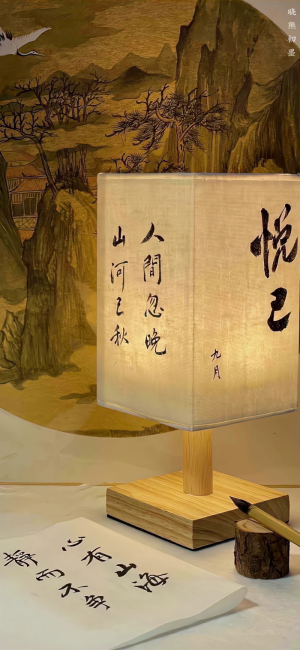 人間忽晚
山河已秋
悦己
九月
心有山海
靜而不爭
晓熊翰墨